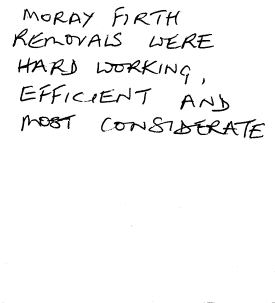 MORAY FIRTH
REMOVALS WERE
HARD WORKING,
EFFICIENT AND
MOST CONSIDERATE